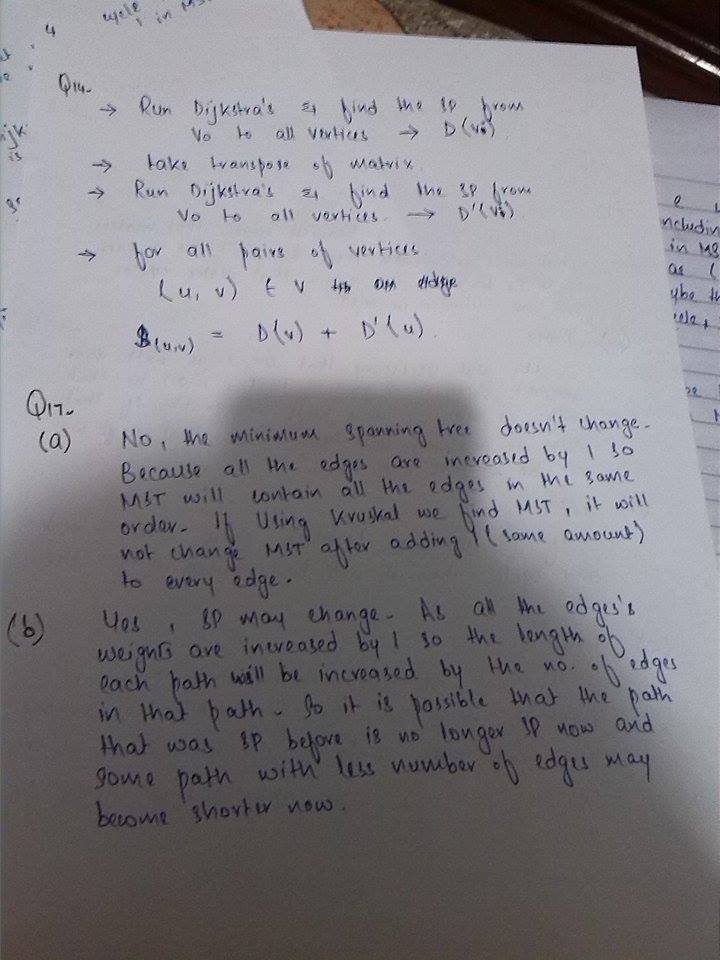 4 cycle, in MS
Q14-
→ Run Dijkstra's & find the SP from
Vo to all vertices → D(vi)
→ take transpose of matrix.
→ Run Dijkstra's & find the SP from
Vo to all vertices. → D'(vi)
→ for all pairs of vertices
(u, v) ∈ V an edge
(u,v) = D(v) + D'(u).
Q17-
(a) No, the minimum spanning tree doesn't change-
Because all the edges are increased by 1 so
MST will contain all the edges in the same
order- If Using Kruskal we find MST, it will
not change MST after adding 1 (same amount)
to every edge.
(b) Yes, SP may change- As all the edges's
weights are increased by 1 so the length of
each path will be increased by the no. of edges
in that path- So it is possible that the path
that was SP before is no longer SP now and
some path with less number of edges may
become shorter now.
ncludin
in MS
as (
ybe th